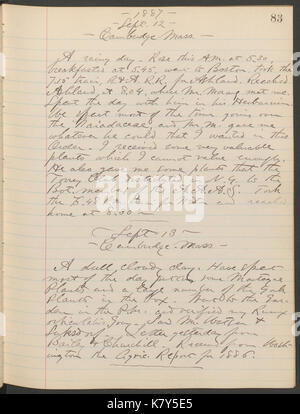 83
- 1887 -
- Sept. 12 -
- Cambridge Mass -
A rainy day. Rose this A.M. at 5.30,
breakfasted at 6.45, went to Boston. Took the
7.15 train, B & A.R.R. for Ashland. Reached
Ashland at 8.04, where Mr. Morong met me.
Spent the day with him in his Herbarium
We spent most of the time going over
the Naiadaceae, and Mr. M. gave me
whatever he could that I wanted in this
Order. I received some very valuable
plants which I cannot value enough.
He also gave me some plants that the
Torrey Club N.Y. to the
Bot. of the A.A.A.S. Took
the 5.45 for and reached
home at 8.00 -
- Sept 13 -
- Cambridge Mass -
A dull, cloudy day. Have spent
most of the day putting
Plants and a large number of the
Plants in the Box. Went to the Gar-
den in the P.M. and verified my
Saw Mr. Watson &
Letter yesterday from
Bailey & Churchill. Received from Wash-
ington the Agric. Report for 1886.
alamy
Image ID: K7Y5E5
www.alamy.com